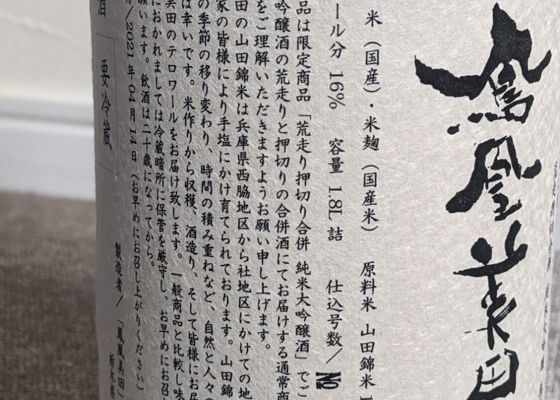 鳳凰美田
米（国産）・米麹（国産米）　原料米　山田錦米
ール分　16%　容量　1.8L詰　仕込号数／№
品は限定商品「荒走り押切り合併　純米大吟醸酒」でご
吟醸酒の荒走りと押切りの合併酒にてお届けする通常商
をご理解いただきますようお願い申し上げます。
田の山田錦米は兵庫県西脇地区から社地区にかけての地
家の皆様により手塩にかけ育てられております。山田錦
の季節の移り変わり、時間の積み重ねなど、自然と人々の
は幸いです。米作りから収穫、酒造り、そして皆様にお届
美田のテロワールをお届け致します。一般商品と比較し味
におかれましては冷蔵暗所に保管を厳守し、お早めにお召
願います。飲酒は二十歳になってから。
2021年04月14日（お早めにお召し上がりください）
製造者／「鳳凰美田」
栃木県
酒
要冷蔵